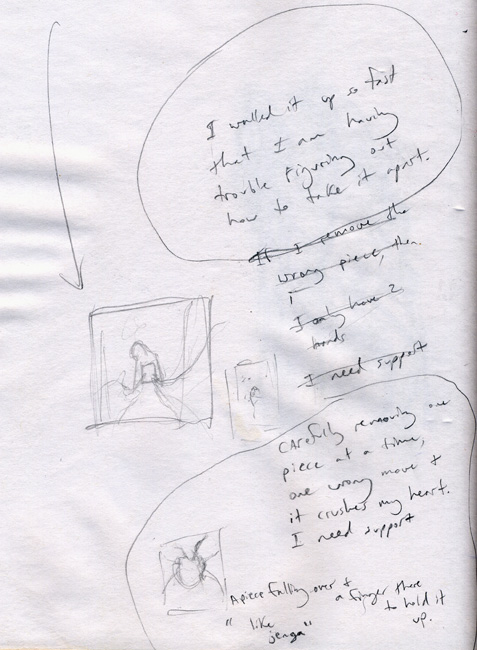 I walled it up so fast
that I am having
trouble figuring out
how to take it apart.
If I remove the
wrong piece, then
I
I only have 2
hands
I need support
Carefully removing one
piece at a time,
one wrong move +
it crushes my heart.
I need support
A piece falling over + a finger there
to hold it
up.
"like
jenga"